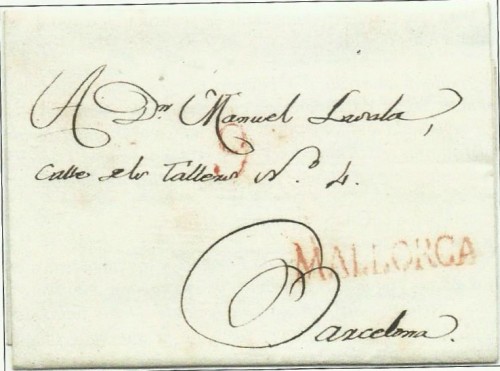 A Dn Manuel Lavala,
9
Calle de los Talleres N.º 4.
MALLORCA
Barcelona.